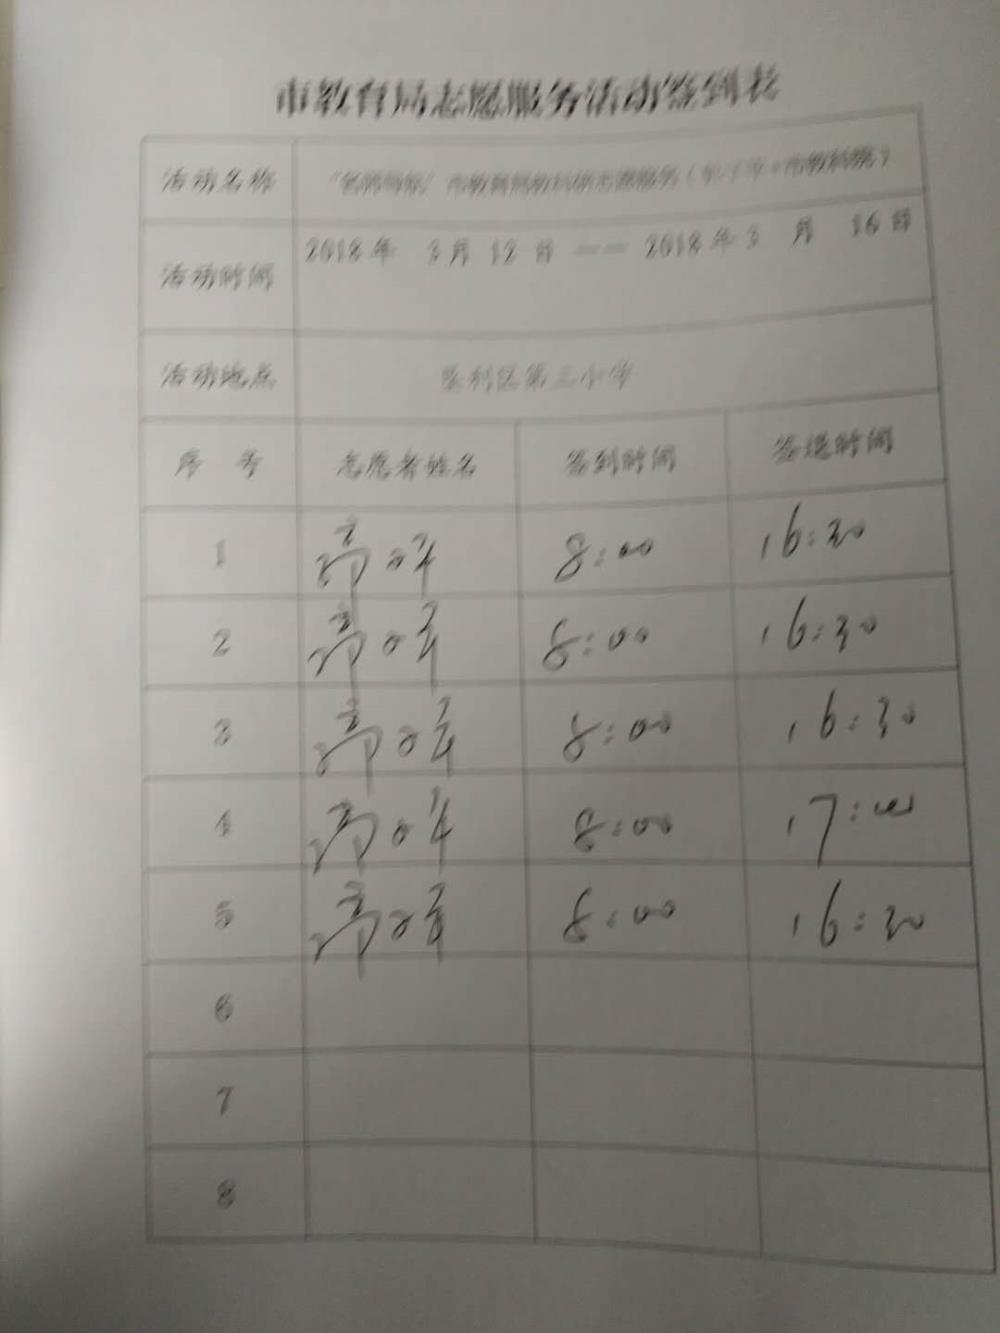 市教育局志愿服务活动签到表
活动名称
活动时间 2018年 3月 12日 —— 2018年3 月 16日
活动地点 垦利区第三小学
序 号 志愿者姓名 签到时间 签退时间
1 8:00 16:30
2 8:00 16:30
3 8:00 16:30
4 8:00 17:00
5 8:00 16:30
6
7
8